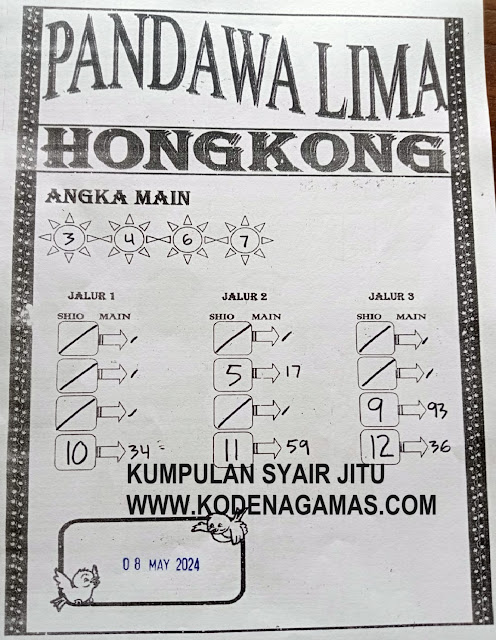 PANDAWA LIMA
HONGKONG
ANGKA MAIN
3 4 6 7
JALUR 1 JALUR 2 JALUR 3
SHIO MAIN SHIO MAIN SHIO MAIN
/ / / / / /
/ / 5 17 / /
/ / / / 9 93
10 34 11 59 12 36
KUMPULAN SYAIR JITU
WWW.KODENAGAMAS.COM
08 MAY 2024